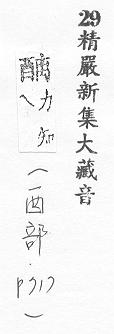 29精嚴新集大藏音
力知
(酉部·p717)